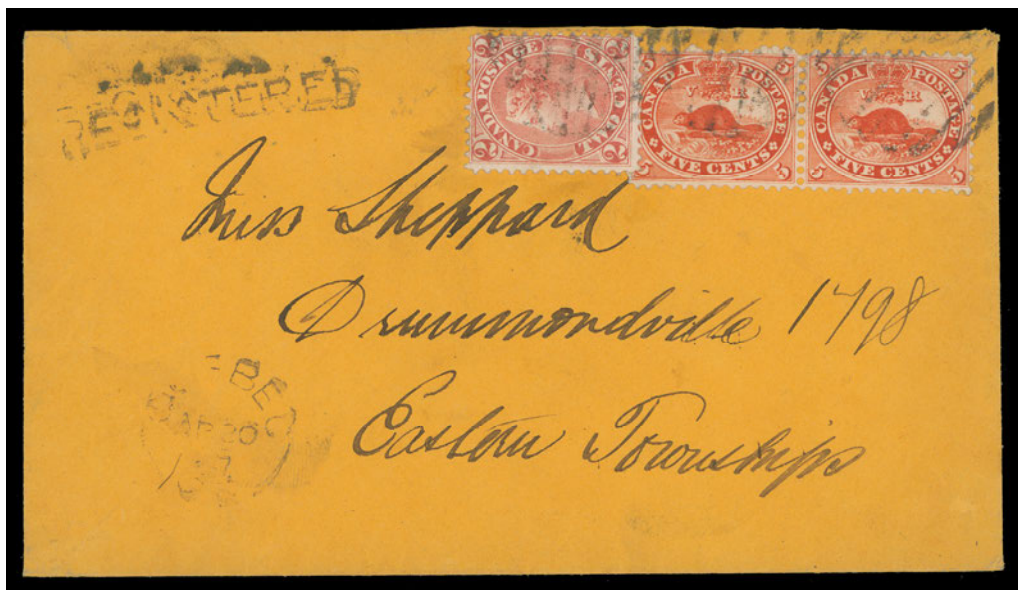 REGISTERED
CANADA POSTAGE
TWO CENTS
2 2 2 2
CANADA POSTAGE
V R
FIVE CENTS
5 5 5 5
CANADA POSTAGE
V R
FIVE CENTS
5 5 5 5
Miss Sheppard
Drummondville 1798
Eastern Townships
BEC
AP 20